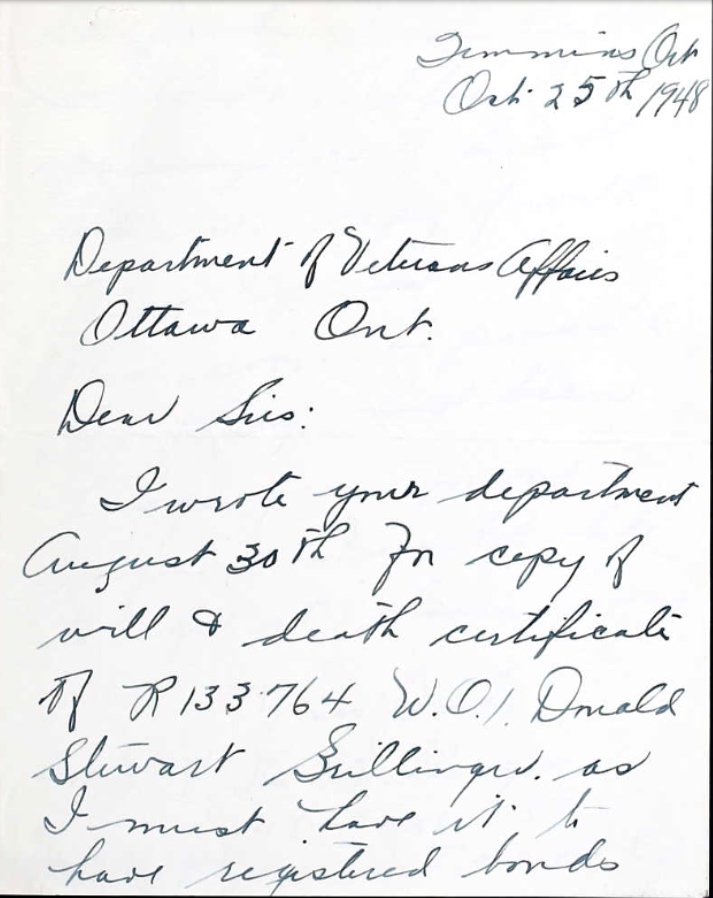 Timmins Ont
Oct. 25th 1948
Department of Veterans Affairs
Ottawa Ont.
Dear Sirs:
I wrote your department
August 30th for copy of
will & death certificate
of R133764 W.O.1. Donald
Stewart as
I must have it to
have registered bonds